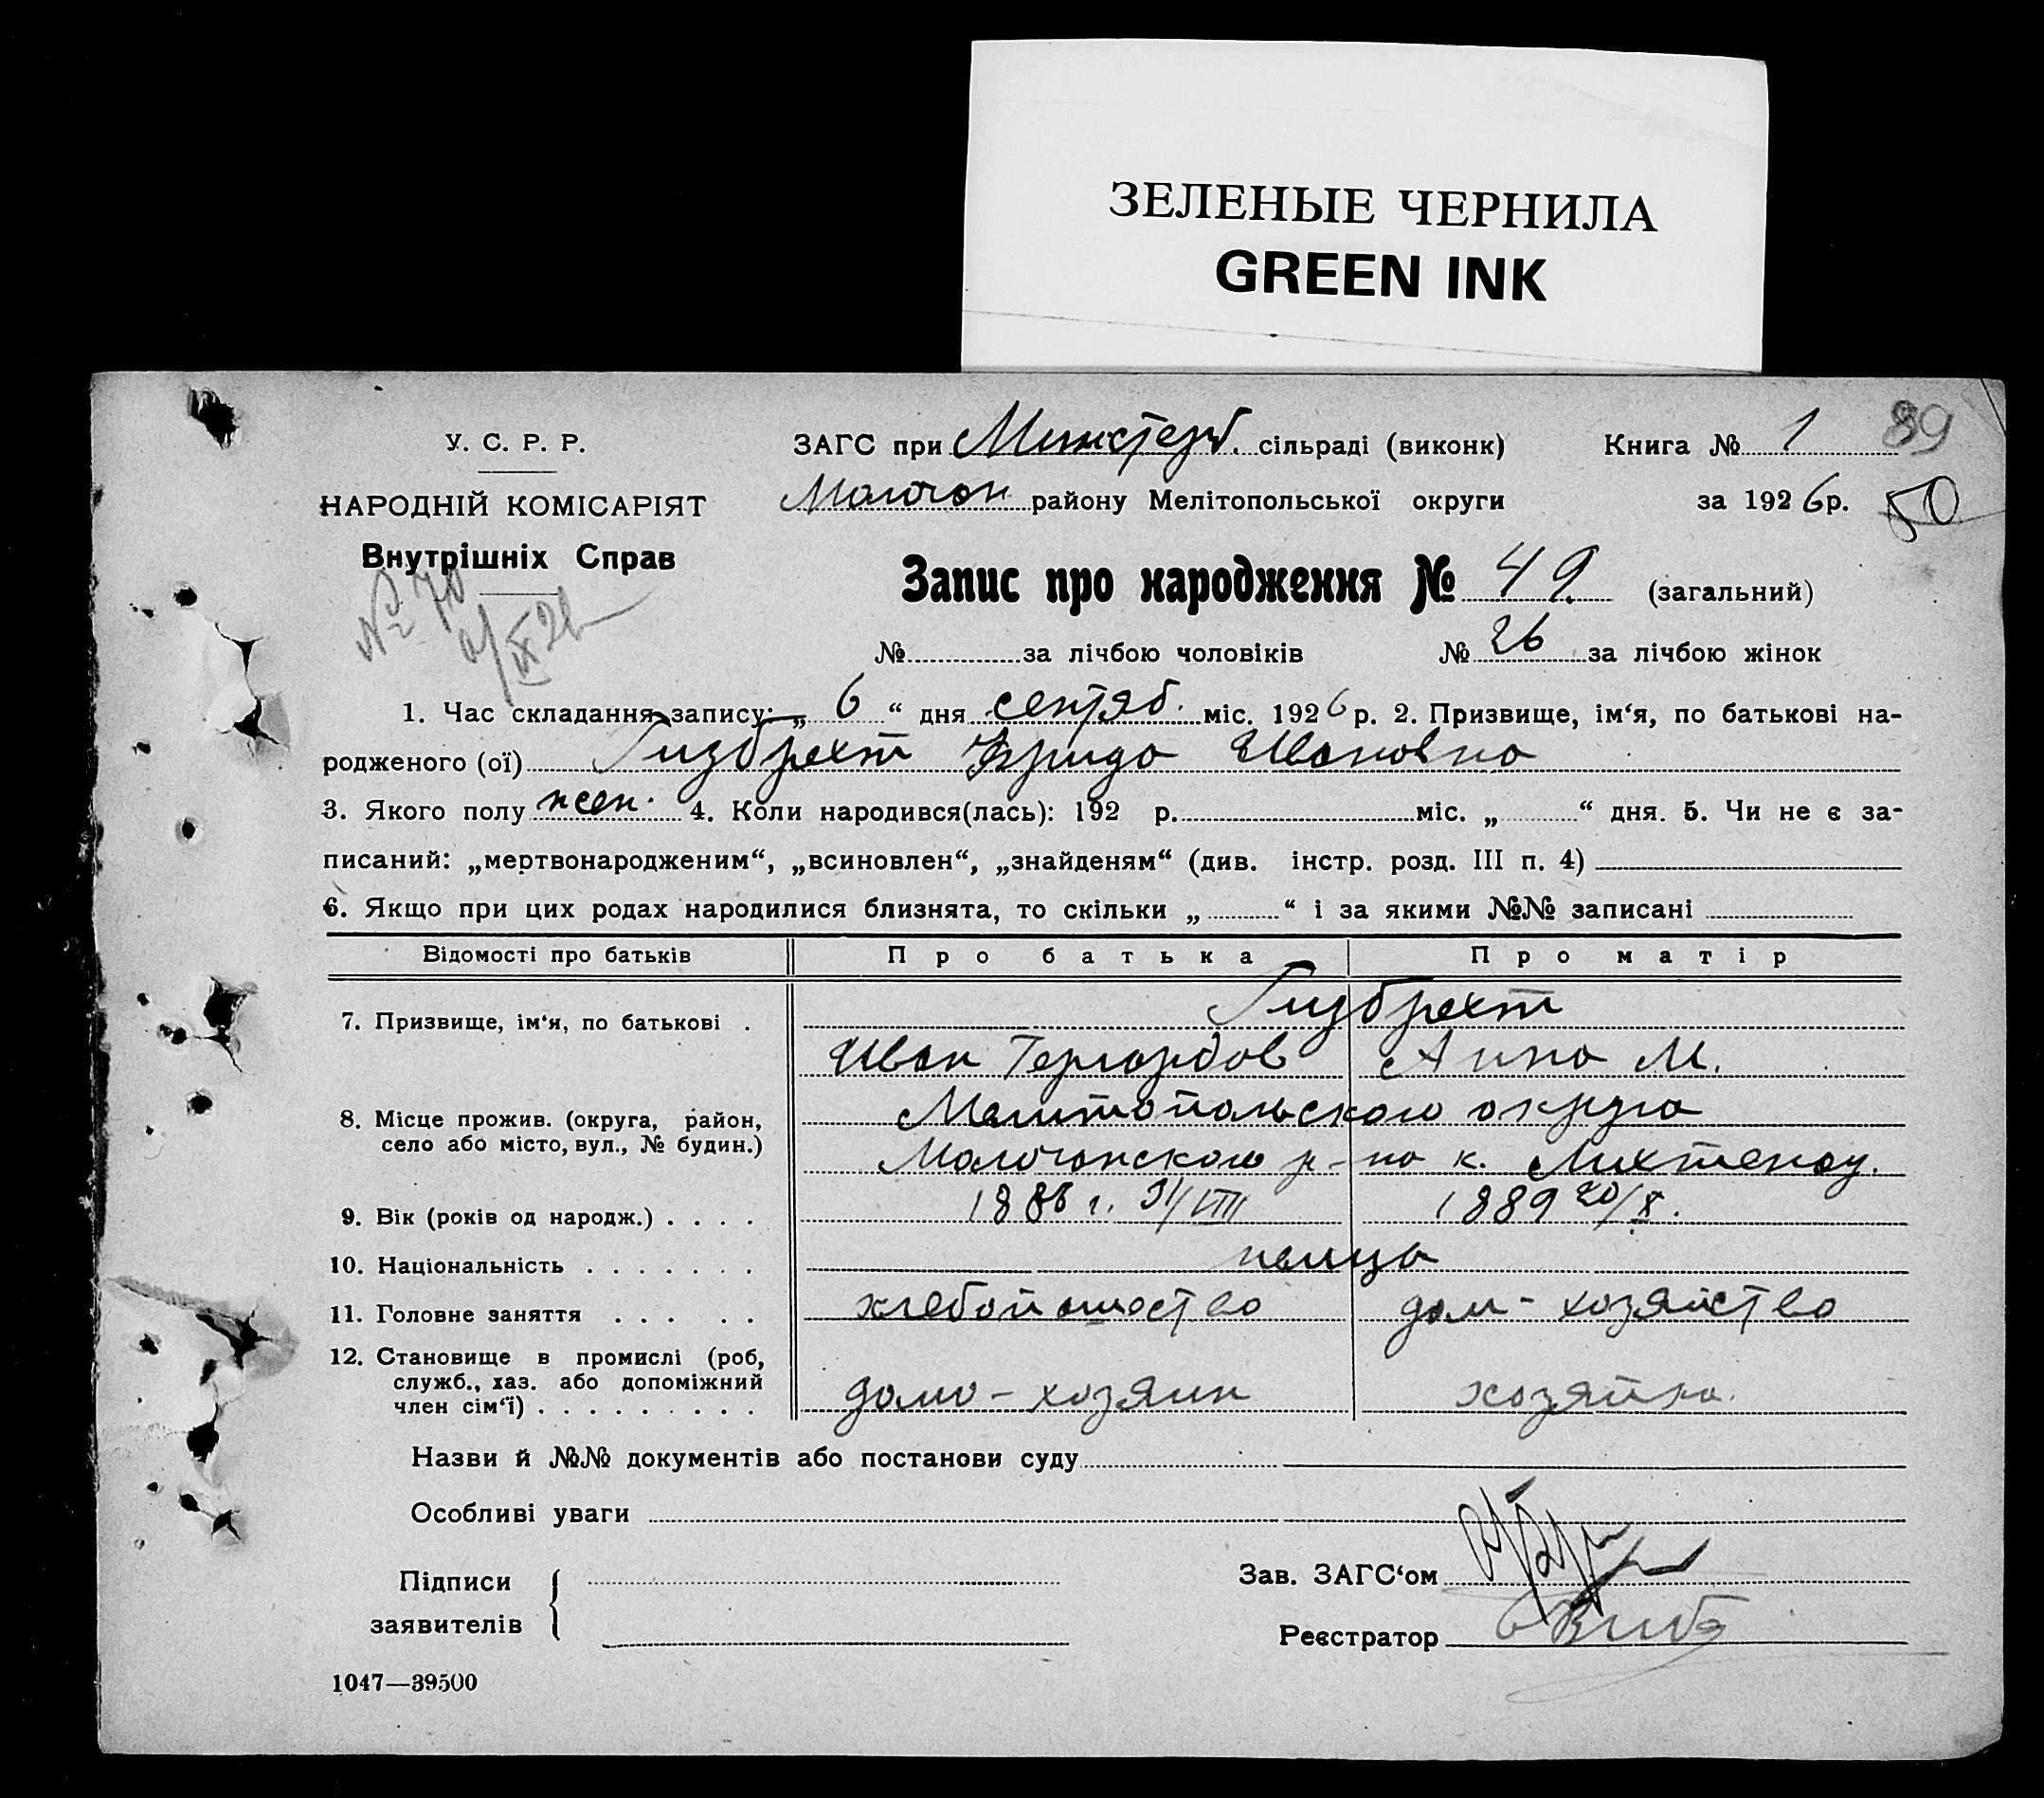 ЗЕЛЕНЫЕ ЧЕРНИЛА
GREEN INK
У. С. Р. Р.
НАРОДНІЙ КОМІСАРІЯТ
Внутрішніх Справ
№ 70
ЗАГС при Минстерб. сільраді (виконк)
Книга № 1
89
Молочан районy Мелітопольської округи
за 1926 р.
50
Запис про народження № 49 (загальний)
№ за лічбою чоловіків № 26 за лічбою жінок
1. Час складання запису: „ 6 “ дня сентяб. міс. 1926 р. 2. Призвище, ім‘я, по батькові на-
родженого (ої) Гизбрехт Фрида Ивановна
3. Якого полу жен. 4. Коли народився(лась): 192 р. міс. „ “ дня. 5. Чи не є за-
писаний: „мертвонародженим“, „всиновлен“, „знайденям“ (див. інстр. розд. III п. 4)
6. Якщо при цих родах народилися близнята, то скільки „ “ і за якими №№ записані
Відомості про батьків Про батька Про матір
7. Призвище, ім‘я, по батькові . Гизбрехт
Иван Гергардов Анна М.
8. Місце прожив. (округа, район, Мелитопольского округа
село або місто, вул., № будин.) Молочанского р-на к. Лихтенау.
9. Вік (років од народж.) . . . . 1886 г. 31/VIII 1889 20/X.
10. Національність . . . . . . . немцы
11. Головне заняття . . . . . хлебопашество дом-хозяйство
12. Становище в промислі (роб,
служб., хаз. або допоміжний
член сім‘ї) . . . . . . . . . домо-хозяин хозяйка.
Назви й №№ документів або постанови суду
Особливі уваги
Підписи
заявителів
Зав. ЗАГС‘ом
Реєстратор
1047—39500